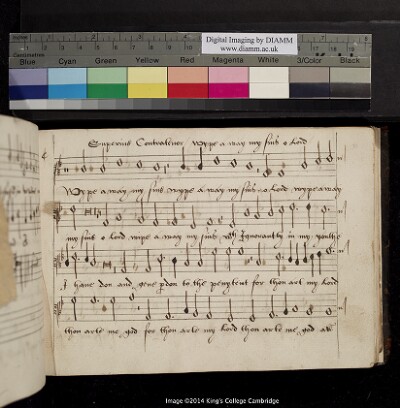 Digital Imaging by DIAMM
www.diamm.ac.uk
Blue Cyan Green Yellow Red Magenta White 3/Color Black
Superius Contratenor Wype a way my sins o lord
Wype a way my sins wype a way my sins o lord wype a way
my sins o lord wipe a way my sins Ignorantly in my youthe
I have don and geve pdon to the penytent for thou art my lord
thou arte my god for thou arte my lord thou arte my god
Image ©2014 King's College Cambridge